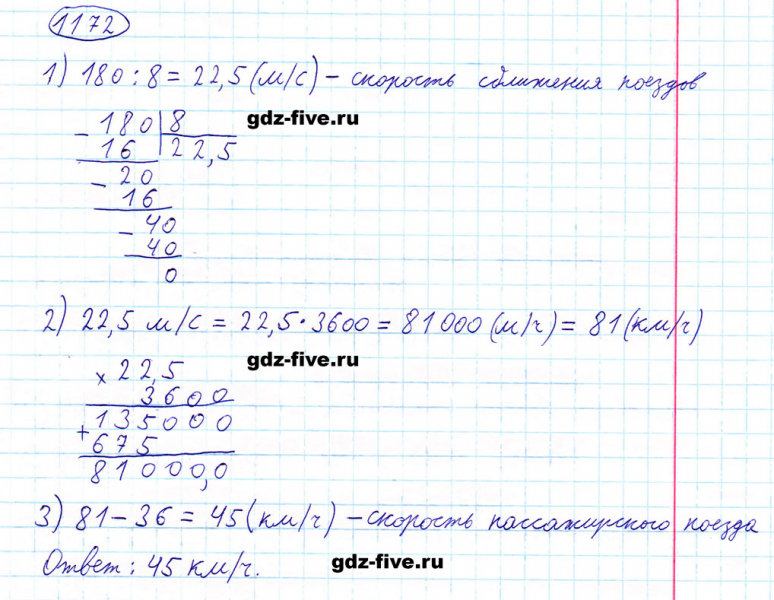 1172
1) 180 : 8 = 22,5 (м/с) – скорость сближения поездов
gdz-five.ru
– 180 | 8
16 | 22,5
– 20
16
– 40
40
0
2) 22,5 м/с = 22,5 · 3600 = 81000 (м/ч) = 81 (км/ч)
gdz-five.ru
× 22,5
3600
135000
+ 675
81000,0
3) 81 – 36 = 45 (км/ч) – скорость пассажирского поезда
Ответ: 45 км/ч.
gdz-five.ru